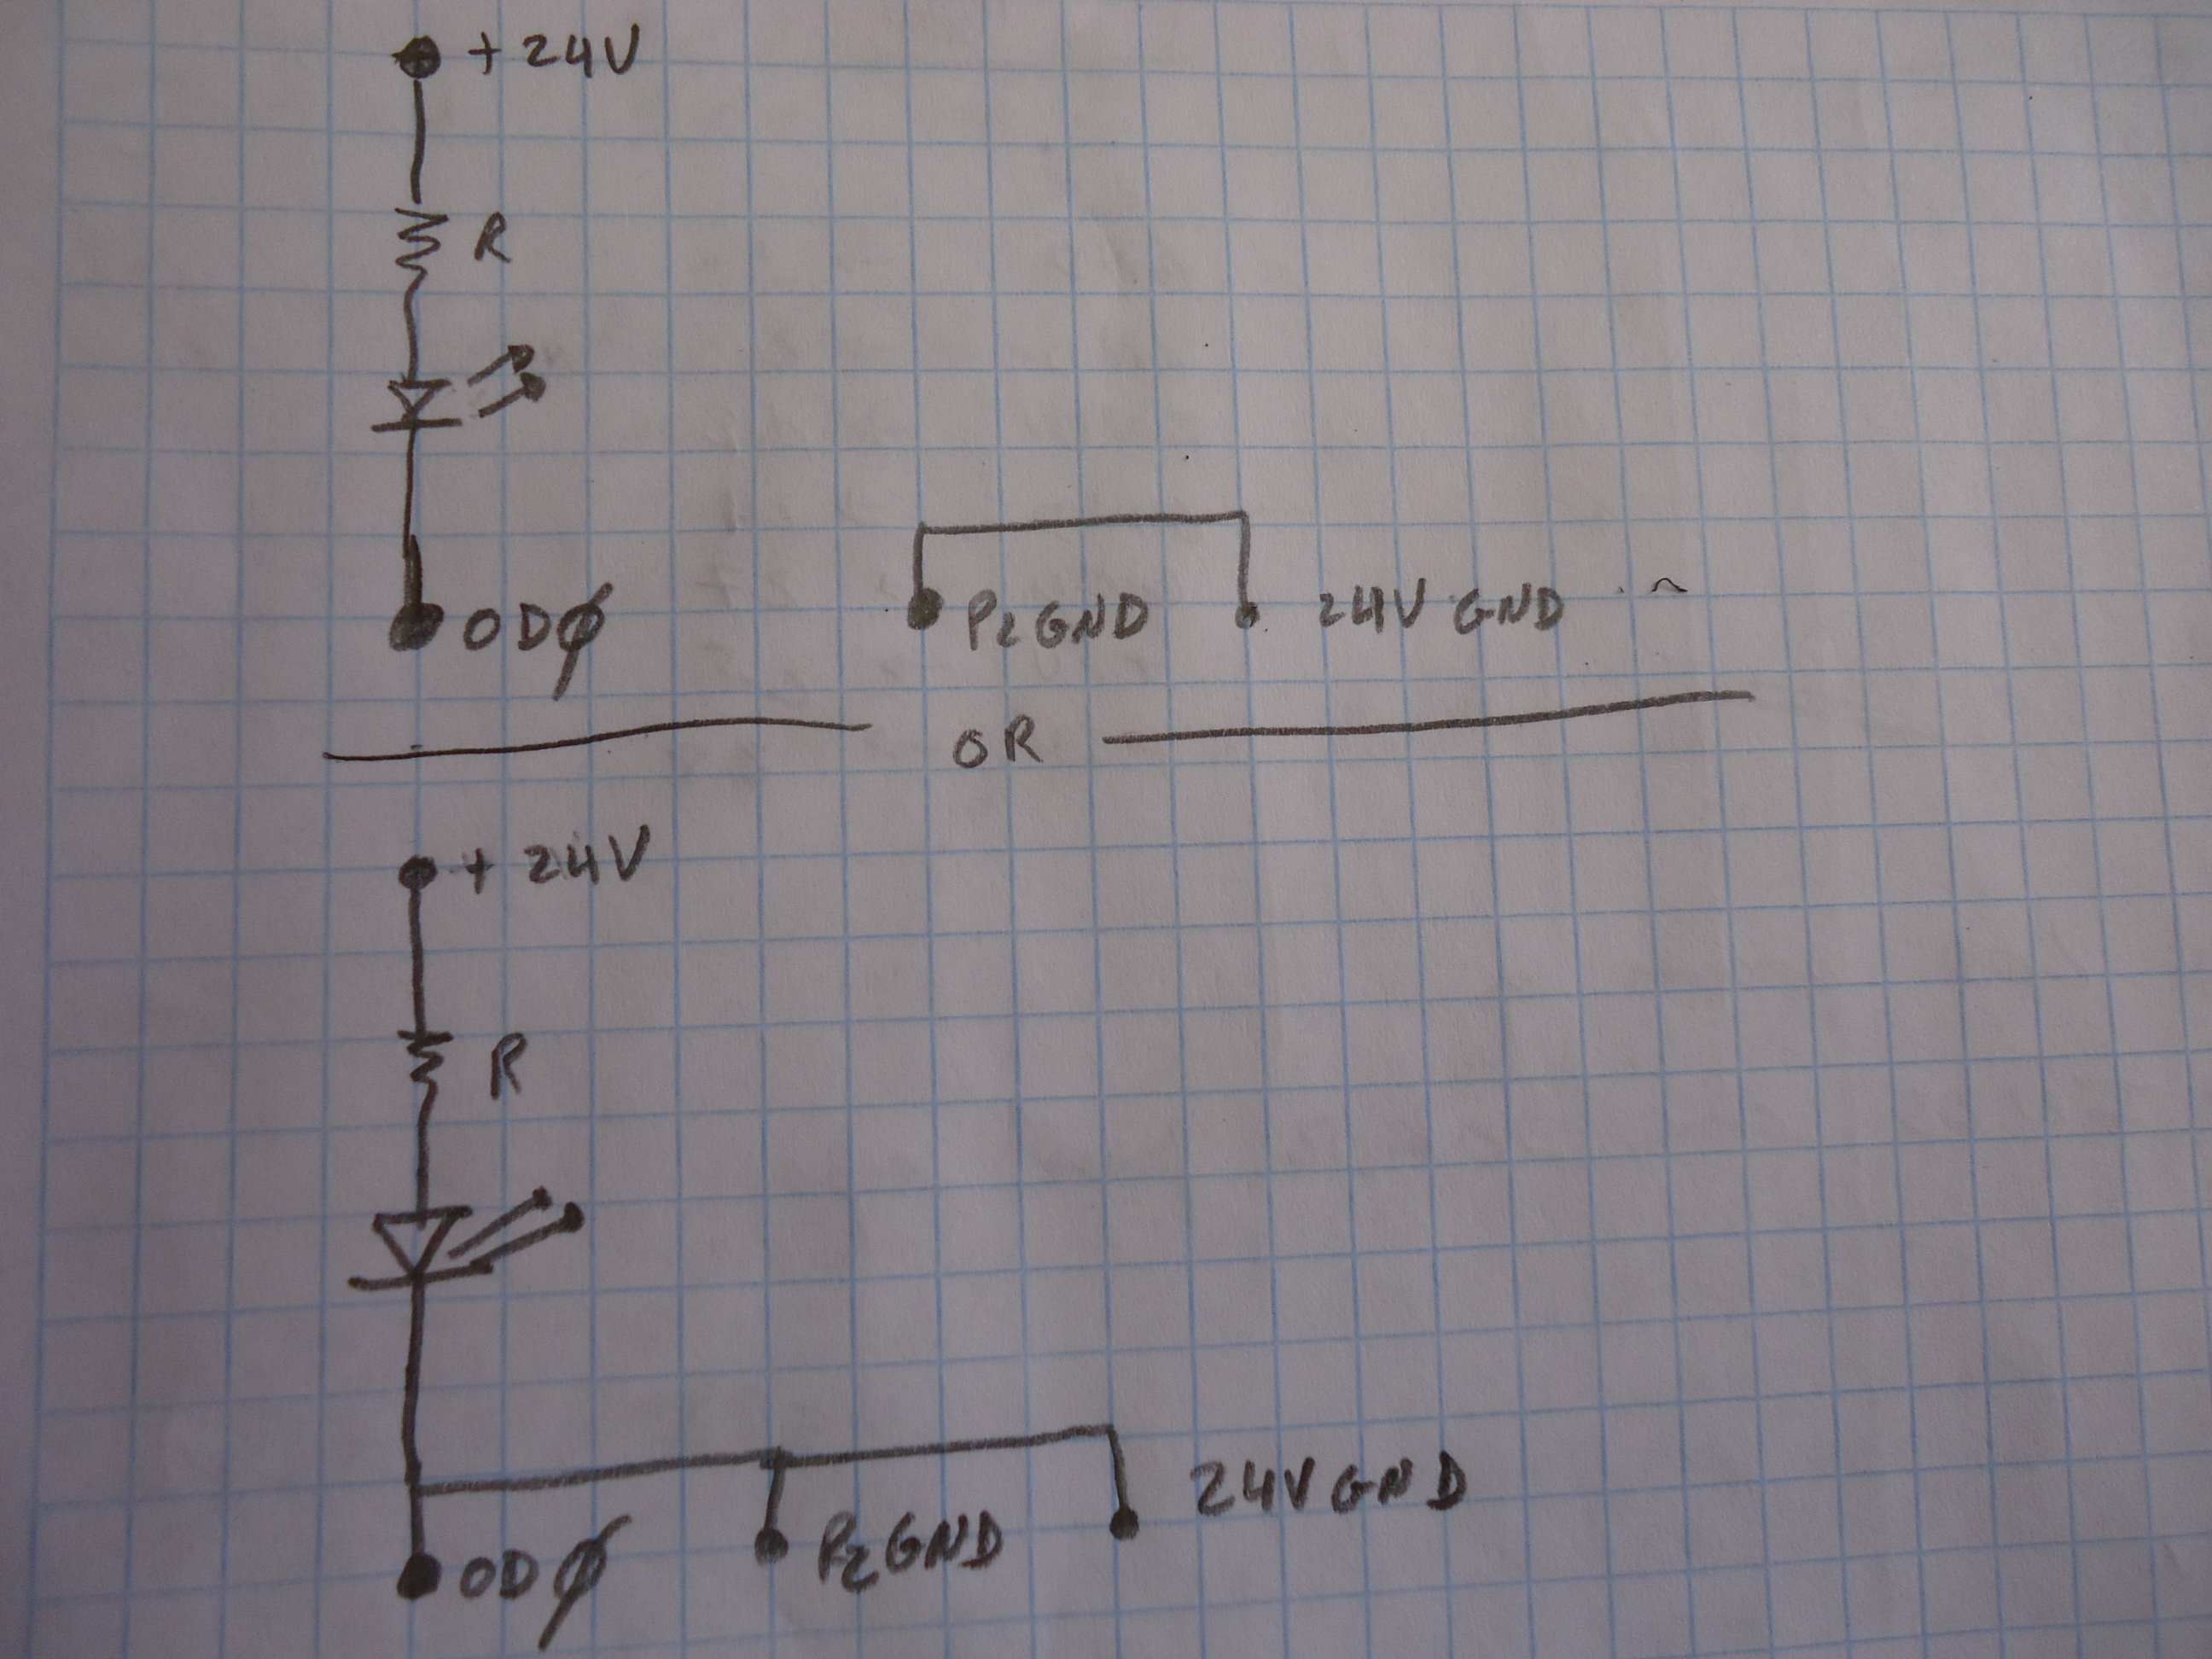 +24V
R
ODØ
P2GND
24V GND
OR
+24V
R
24V GND
ODØ
P2GND